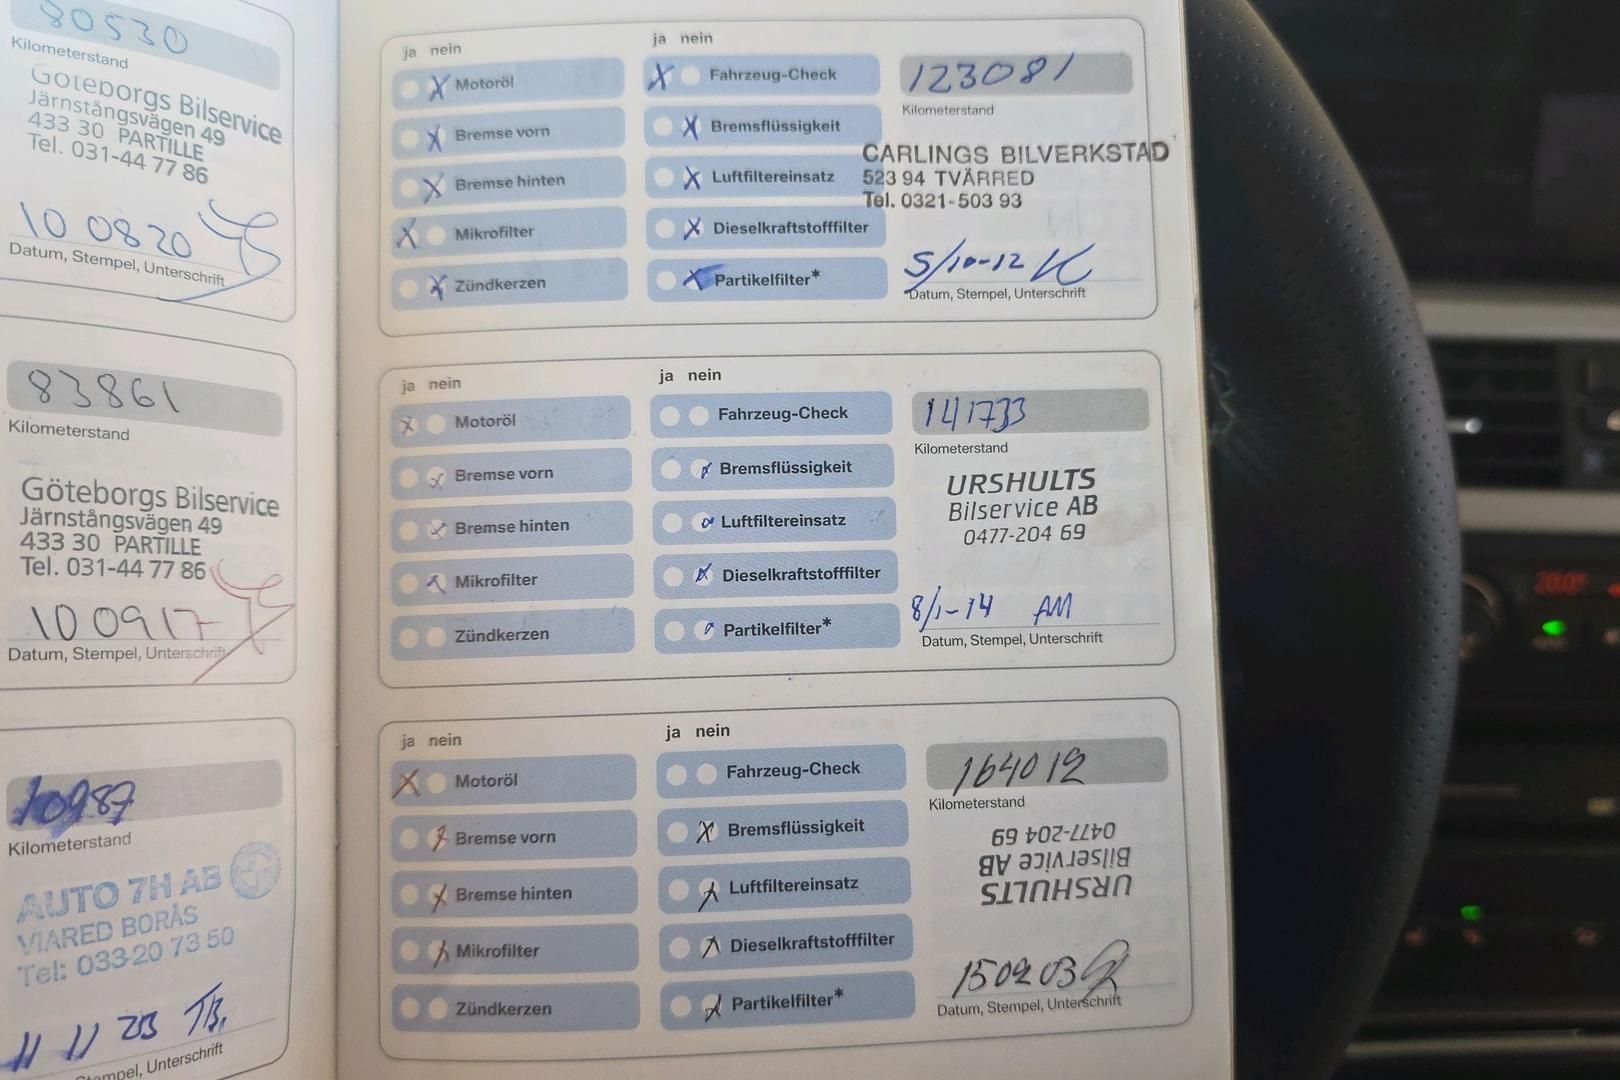 80530
Kilometerstand
Göteborgs Bilservice
Järnstångsvägen 49
433 30 PARTILLE
Tel. 031-44 77 86
10 08 20
Datum, Stempel, Unterschrift
83861
Kilometerstand
Göteborgs Bilservice
Järnstångsvägen 49
433 30 PARTILLE
Tel. 031-44 77 86
10 09 17
Datum, Stempel, Unterschrift
Kilometerstand
AUTO 7H AB
VIARED BORÅS
Tel: 033-20 73 50
11 11 23
Stempel, Unterschrift
ja nein
Motoröl
Bremse vorn
Bremse hinten
Mikrofilter
Zündkerzen
ja nein
Fahrzeug-Check
Bremsflüssigkeit
Luftfiltereinsatz
Dieselkraftstofffilter
Partikelfilter*
123081
Kilometerstand
CARLINGS BILVERKSTAD
523 94 TVÄRRED
Tel. 0321-503 93
5/10-12
Datum, Stempel, Unterschrift
ja nein
Motoröl
Bremse vorn
Bremse hinten
Mikrofilter
Zündkerzen
ja nein
Fahrzeug-Check
Bremsflüssigkeit
Luftfiltereinsatz
Dieselkraftstofffilter
Partikelfilter*
141733
Kilometerstand
URSHULTS
Bilservice AB
0477-204 69
8/1-14 AM
Datum, Stempel, Unterschrift
ja nein
Motoröl
Bremse vorn
Bremse hinten
Mikrofilter
Zündkerzen
ja nein
Fahrzeug-Check
Bremsflüssigkeit
Luftfiltereinsatz
Dieselkraftstofffilter
Partikelfilter*
164012
Kilometerstand
URSHULTS
Bilservice AB
0477-204 69
150203
Datum, Stempel, Unterschrift